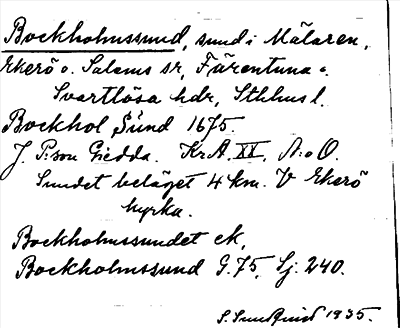 Bockholmssund, sund i Mälaren,
Ekerö o. Salems sr, Färentuna o.
Svartlösa hdr, Sthlms l.
Bockhol Sund 1675.
J. P:son Giedda. KrA. XX, A:o O.
Sundet beläget 4 km. V Ekerö
kyrka.
Bockholmssundet ek,
Bockholmssund G. 75, Sj. 240.
S. Sundqvist 1935.